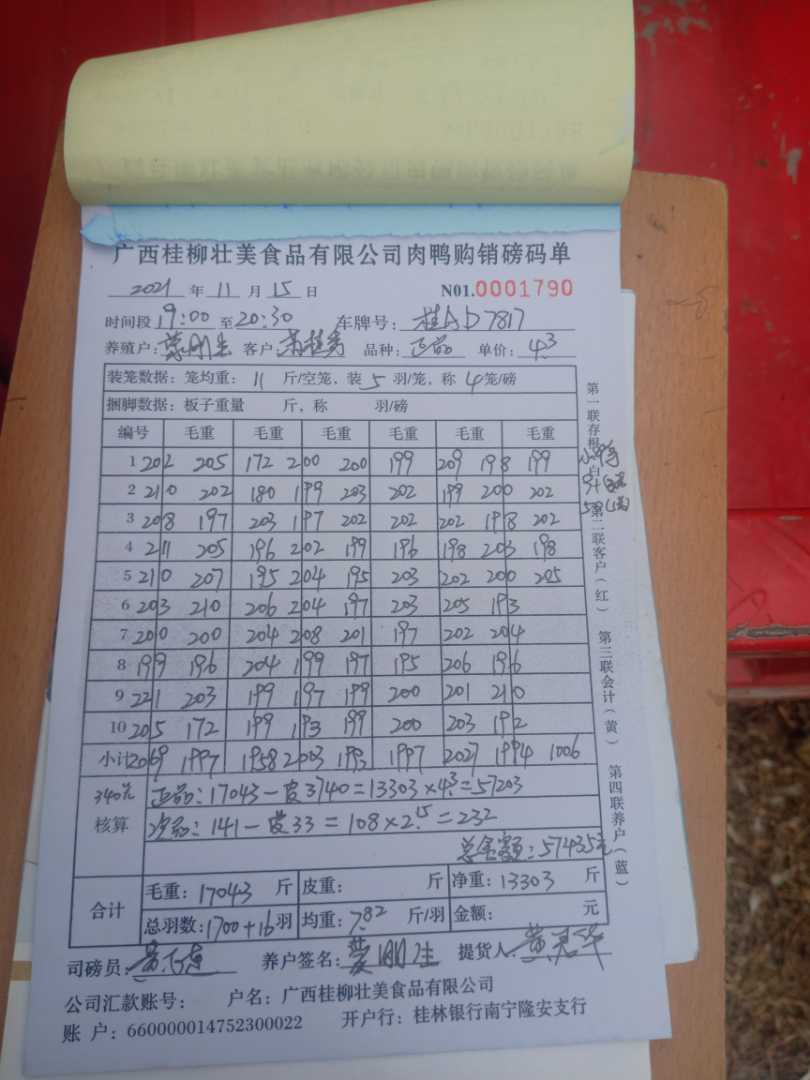 广西桂柳壮美食品有限公司肉鸭购销磅码单
2021 年 11 月 15 日 N01.0001790
时间段 19:00 至 20:30 车牌号: 桂AD7817
养殖户: 客户: 品种: 正品 单价: 4.3
装笼数据: 笼均重: 11 斤/空笼, 装 5 羽/笼, 称 4 笼/磅
捆脚数据: 板子重量 斤, 称 羽/磅
编号 毛重 毛重 毛重 毛重 毛重 毛重
1 202 205 172 200 200 199 209 198 199
2 210 202 180 199 203 202 199 200 202
3 208 197 203 197 202 202 202 198 202
4 211 205 196 202 199 196 198 203 198
5 210 207 195 204 195 203 202 200 205
6 203 210 206 204 197 203 205 193
7 200 200 204 208 201 197 202 204
8 199 196 204 199 197 195 206 196
9 221 203 199 197 199 200 201 210
10 205 172 199 193 199 200 203 192
小计 2069 1997 1958 2003 1997 2027 1994 1006
340只 正品: 17043-皮3740=13303×4.3=57203
核算 次品: 141-皮33=108×2.15=232
总金额: 57435元
合计 毛重: 17043 斤 皮重: 斤 净重: 13303 斤
总羽数: 1700+16 羽 均重: 7.82 斤/羽 金额: 元
司磅员: 养户签名: 提货人:
公司汇款账号: 户名: 广西桂柳壮美食品有限公司
账 户: 660000014752300022 开户行: 桂林银行南宁隆安支行
第一联存根(白) 第二联客户(红) 第三联会计(黄) 第四联养户(蓝)